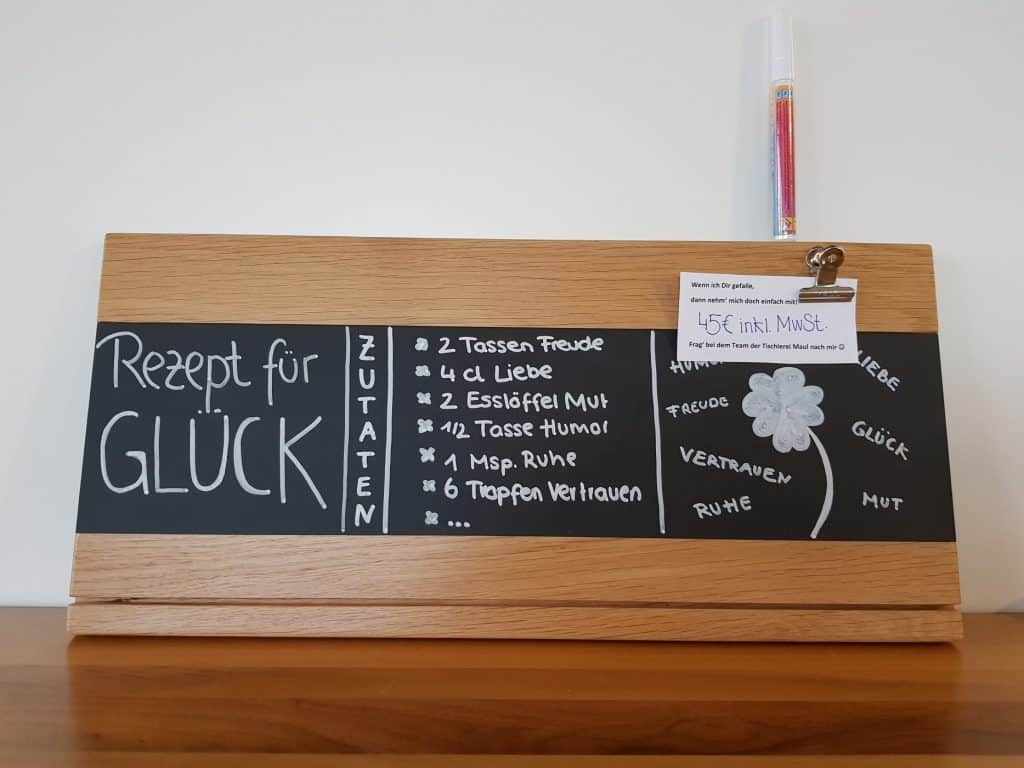 Wenn ich Dir gefalle,
dann nehm' mich doch einfach mit!
45€ inkl. MwSt.
Frag' bei dem Team der Tischlerei Maul nach mir ☺
Rezept für
GLÜCK
ZUTATEN
2 Tassen Freude
4 cl Liebe
2 Esslöffel Mut
1/2 Tasse Humor
1 Msp. Ruhe
6 Tropfen Vertrauen
...
HUMOR
FREUDE
VERTRAUEN
RUHE
LIEBE
GLÜCK
MUT